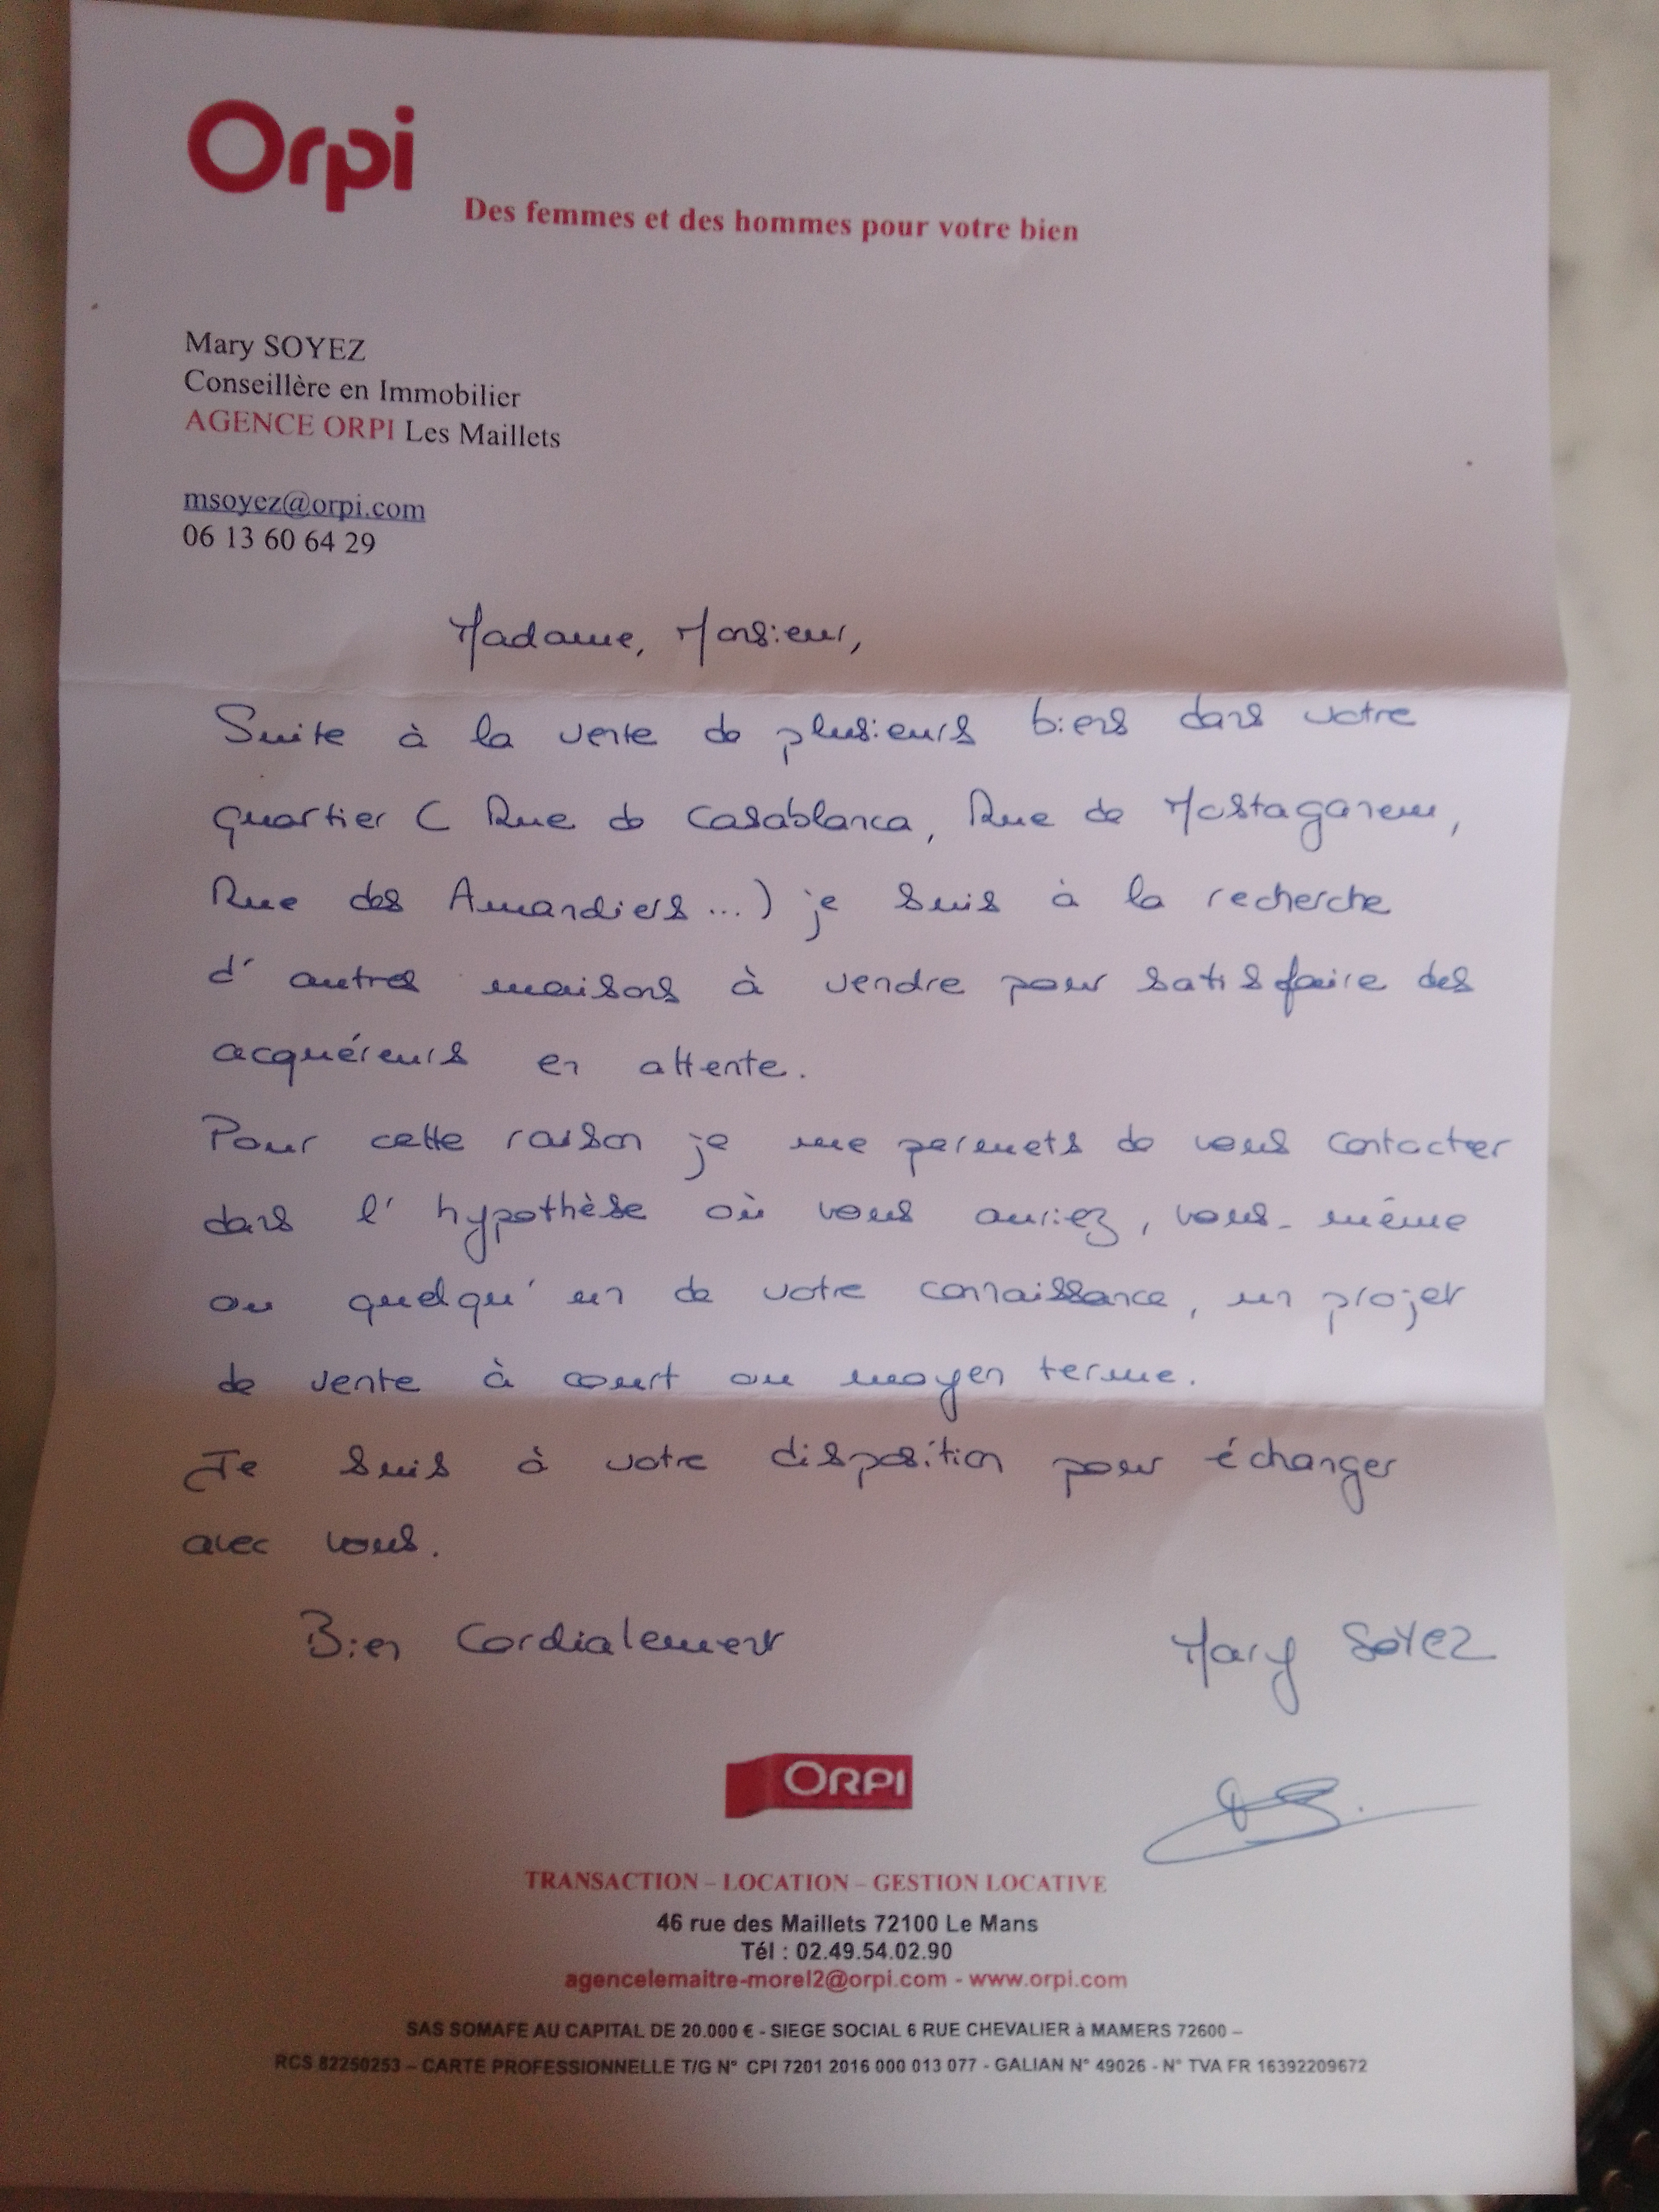 Orpi
Des femmes et des hommes pour votre bien
Mary SOYEZ
Conseillère en Immobilier
AGENCE ORPI Les Maillets
msoyez@orpi.com
06 13 60 64 29
Madame, Monsieur,
Suite à la vente de plusieurs biens dans votre
quartier ( Rue de Casablanca, Rue de Mostaganem,
Rue des Amandiers...) je suis à la recherche
d'autres maisons à vendre pour satisfaire des
acquéreurs en attente.
Pour cette raison je me permets de vous contacter
dans l'hypothèse où vous auriez, vous-même
ou quelqu'un de votre connaissance, un projet
de vente à court ou moyen terme.
Je suis à votre disposition pour échanger
avec vous.
Bien Cordialement
Mary SOYEZ
ORPI
TRANSACTION – LOCATION – GESTION LOCATIVE
46 rue des Maillets 72100 Le Mans
Tél : 02.49.54.02.90
agencelemaitre-morel2@orpi.com - www.orpi.com
SAS SOMAFE AU CAPITAL DE 20.000 € - SIEGE SOCIAL 6 RUE CHEVALIER à MAMERS 72600 –
RCS 82250253 – CARTE PROFESSIONNELLE T/G N° CPI 7201 2016 000 013 077 - GALIAN N° 49026 - N° TVA FR 16392209672